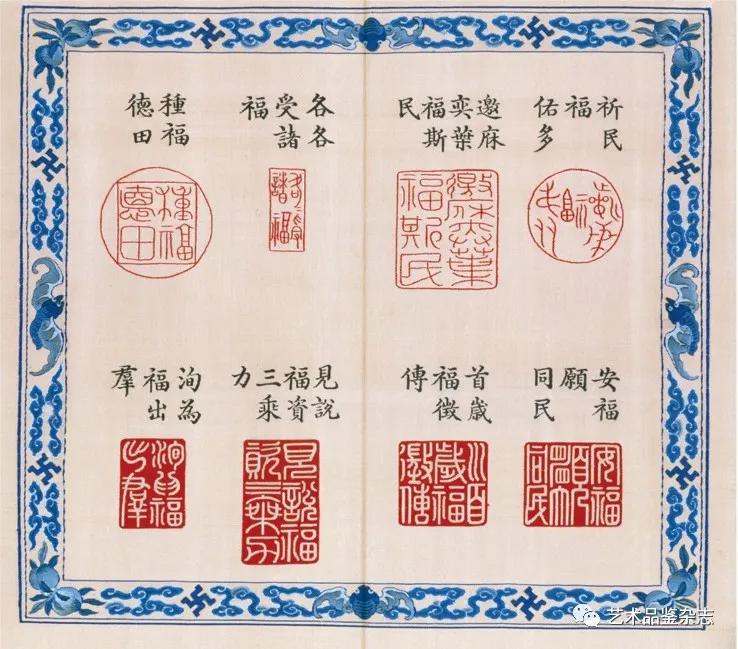 祈民
福
佑多
邀庥
奕葉
福斯
民
各各
受諸
福
種福
德田
安福
願
同民
首歲
福徵
傳
見說
福資
三乘
力
洵為
福出
羣
艺术品鉴杂志